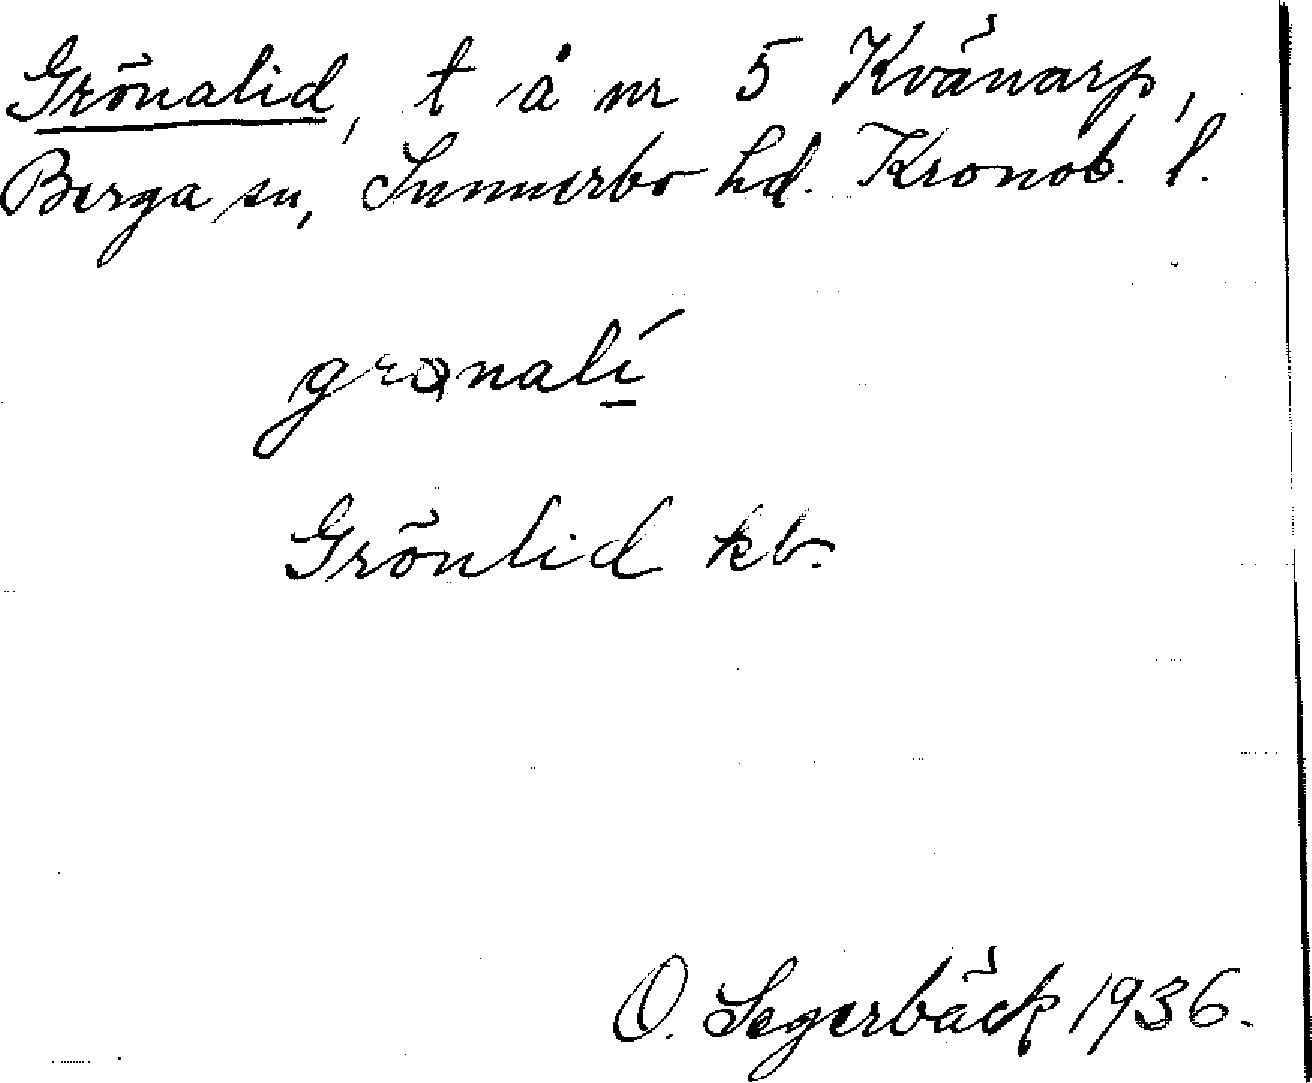 Grönalid, t å nr 5 Kvänarp,
Berga sn, Sunnerbo hd. Kronob. l.
grǫnalí̱
Grönlid kb.
O. Segerbäck 1936.